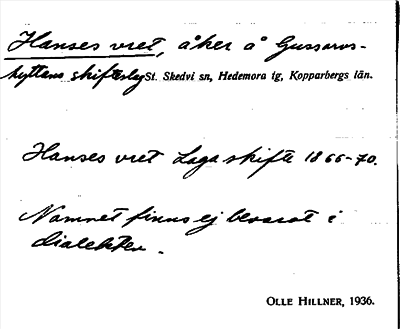 Hanses vret, åker å Gussarvs-
hyttans skifteslag St. Skedvi sn, Hedemora tg, Kopparbergs län.
Hanses vret Laga skifte 1866-70.
Namnet finns ej bevarat i
dialekten.
OLLE HILLNER, 1936.